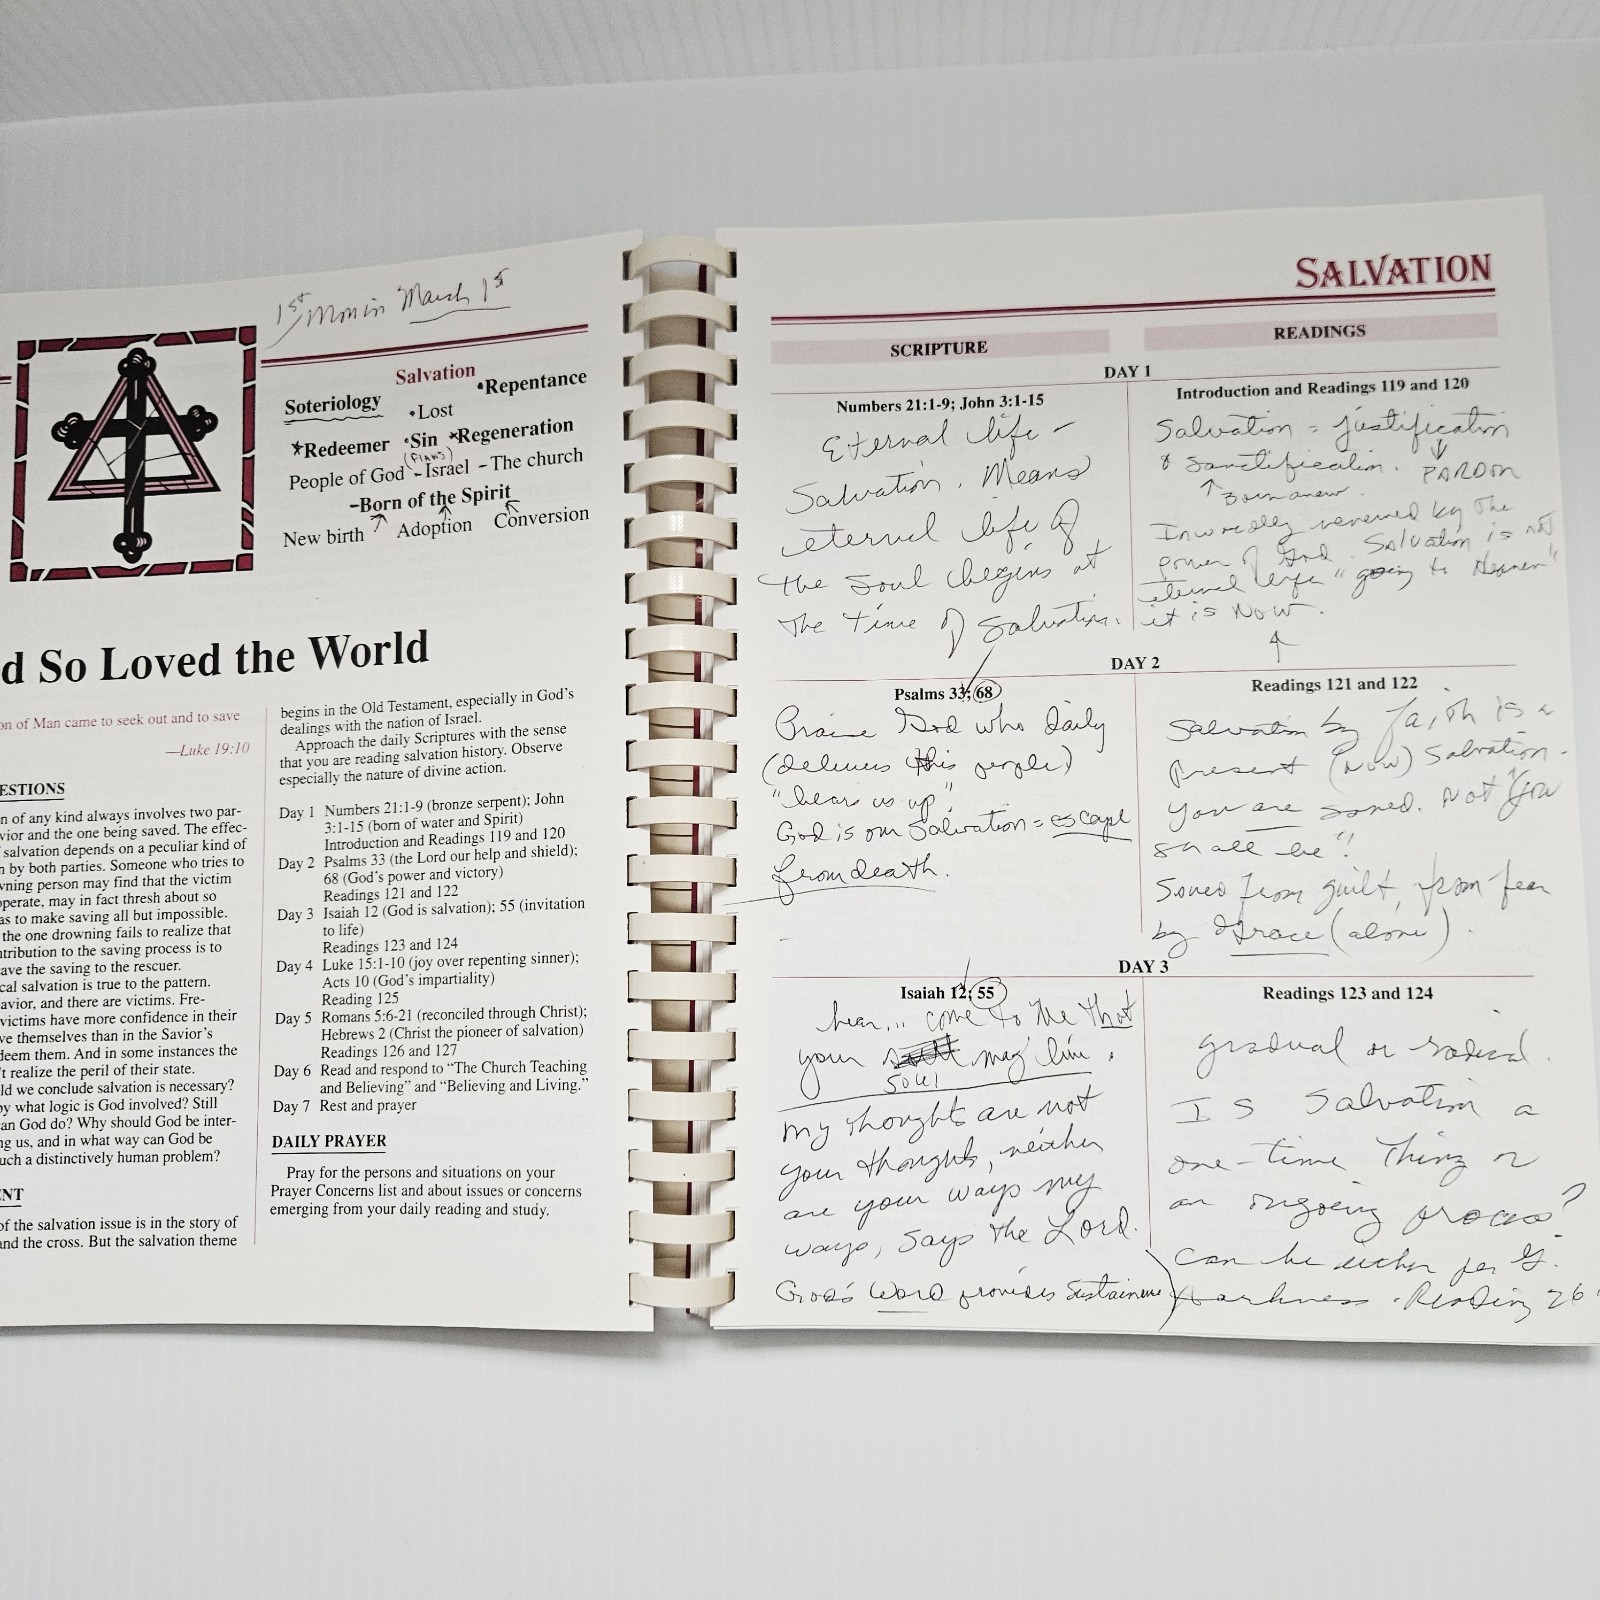 1st Mon in March 1st
Salvation
Soteriology
•Lost
•Repentance
*Redeemer •Sin *Regeneration
(Plans)
People of God -Israel -The church
-Born of the Spirit
New birth Adoption Conversion
d So Loved the World
on of Man came to seek out and to save
—Luke 19:10
ESTIONS
n of any kind always involves two par-
vior and the one being saved. The effec-
salvation depends on a peculiar kind of
n by both parties. Someone who tries to
wning person may find that the victim
operate, may in fact thresh about so
as to make saving all but impossible.
the one drowning fails to realize that
ntribution to the saving process is to
ave the saving to the rescuer.
cal salvation is true to the pattern.
avior, and there are victims. Fre-
victims have more confidence in their
ve themselves than in the Savior's
deem them. And in some instances the
't realize the peril of their state.
ld we conclude salvation is necessary?
by what logic is God involved? Still
an God do? Why should God be inter-
ng us, and in what way can God be
uch a distinctively human problem?
ENT
of the salvation issue is in the story of
and the cross. But the salvation theme
begins in the Old Testament, especially in God's
dealings with the nation of Israel.
Approach the daily Scriptures with the sense
that you are reading salvation history. Observe
especially the nature of divine action.
Day 1 Numbers 21:1-9 (bronze serpent); John
3:1-15 (born of water and Spirit)
Introduction and Readings 119 and 120
Day 2 Psalms 33 (the Lord our help and shield);
68 (God's power and victory)
Readings 121 and 122
Day 3 Isaiah 12 (God is salvation); 55 (invitation
to life)
Readings 123 and 124
Day 4 Luke 15:1-10 (joy over repenting sinner);
Acts 10 (God's impartiality)
Reading 125
Day 5 Romans 5:6-21 (reconciled through Christ);
Hebrews 2 (Christ the pioneer of salvation)
Readings 126 and 127
Day 6 Read and respond to "The Church Teaching
and Believing" and "Believing and Living."
Day 7 Rest and prayer
DAILY PRAYER
Pray for the persons and situations on your
Prayer Concerns list and about issues or concerns
emerging from your daily reading and study.
SALVATION
SCRIPTURE
READINGS
DAY 1
Numbers 21:1-9; John 3:1-15
Eternal life -
Salvation. Means
eternal life of
the soul begins at
the time of salvation.
Introduction and Readings 119 and 120
Salvation = justification
& sanctification. PARDON
Born anew.
Inwardly renewed by the
power of God. Salvation is not
eternal life "going to Heaven"
it is Now.
DAY 2
Psalms 33; 68
Praise God who daily
(delivers this people)
"bears us up"
God is our salvation = escape
from death.
Readings 121 and 122
Salvation by Faith is a
present (now) Salvation.
You are saved. Not "you
shall be"!
Saved from guilt, from fear
by Grace (alone).
DAY 3
Isaiah 12; 55
hear... come to me that
your soul may live.
My thoughts are not
your thoughts, neither
are your ways my
ways, says the Lord.
God's Word provides
Readings 123 and 124
gradual or radical.
Is Salvation a
one-time thing or
an ongoing process?
Can be either per G.
Harkness. Reading 26